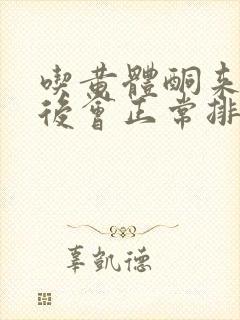 喫黃體酮来
後會正常排
辜凱德